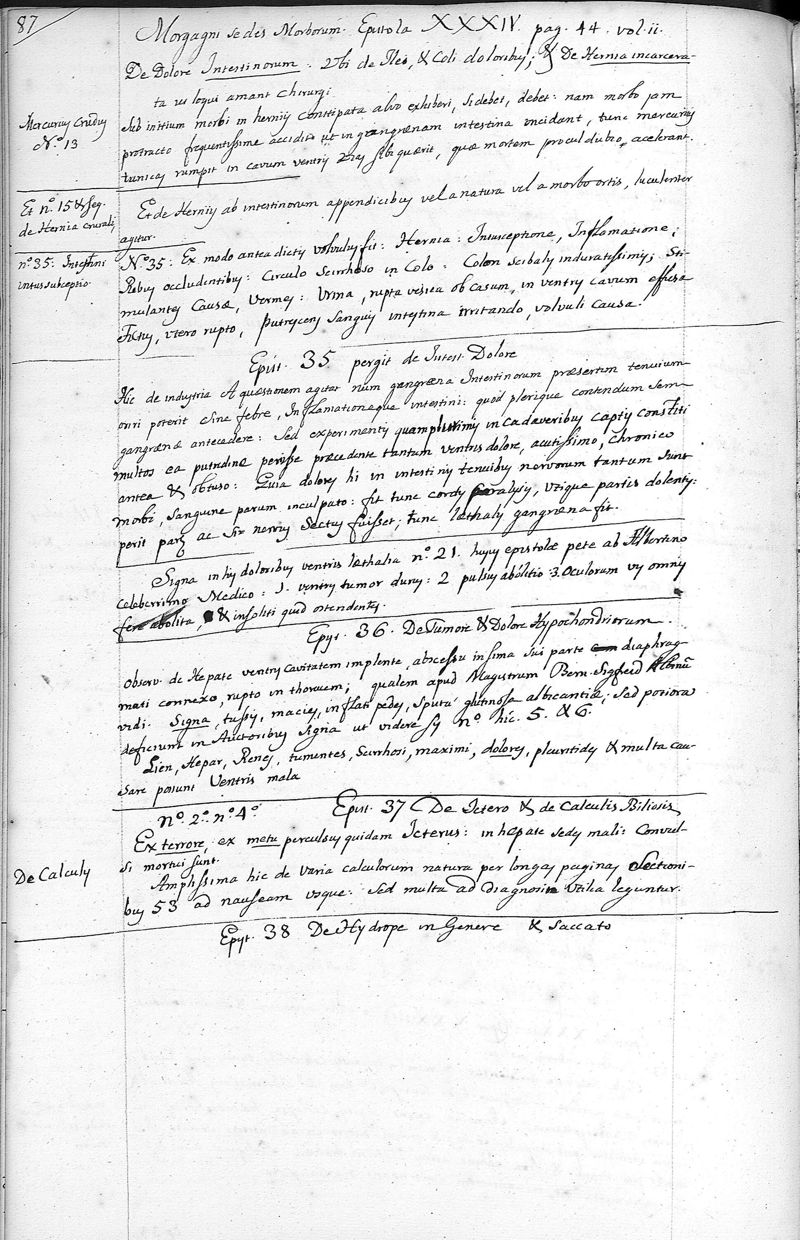 87
Morgagni sedes Morborum. Epistola XXXIV. pag. 44. vol. ii.
De Dolore Intestinorum. Ubi de Ileo, & Coli doloribus; & De Hernia incarcera-
ta ut loqui amant Chirurgi
Mercurius Crudus
Nº. 13
sub initium morbi in herniis constipata alvo exhiberi, si debet, debet: nam morbo jam
protracto frequentissime accidit ut in gangrænam intestina incidant, tunc mercurius
tunicas rumpit in cavum ventris, sibi quærit, quæ mortem procul dubio accelerant.
Et nº. 15 & seq.
de Hernia crurali
Et de Herniis ab intestinorum appendicibus vel a natura vel a morbo ortis, luculenter
agitur.
nº 35: Intestini
intussubceptio
Nº. 35: Ex modo antea dictis volvulus fit: Hernia: Intusceptione, Inflamatione;
Rebus occludentibus: Circulo Scirrhoso in Colo: Colon scibalis induratissimis; Sti-
mulantes Causæ, Vermes: Urina, rupta vesica ob casum, in ventris cavum effusa
Fætus, utero rupto, putrescens sanguis intestina irritando, volvuli causa.
Epist. 35 pergit de Intest. Dolore
Hic de industria A quæstionem agitat num gangræna Intestinorum præsertim tenuium
oriri poterit sine febre, Inflamationeque intestini: quod plerique contendum sem-
gangrænæ antecedere: Sed experimentis quamplurimis in cadaveribus captis constiti
multos ea putredine periisse præcedente tantum ventris dolore, acutissimo, chronico
antea & obtuso: Quia dolores hi in intestinis tenuibus nervorum tantum sunt
morbi, sanguine parum inculpato: fit tunc cordis paralysis, utique partis dolentis:
perit pars ac si nervus sectus fuisset; tunc læthalis gangræna fit.
Signa in his doloribus ventris læthalia nº. 21. hujus epistolæ pete ab Albertino
celeberrimo Medico: 1. ventris tumor durus: 2 pulsus abolitio: 3. Oculorum vis omnis
fere abolita, & insoliti quid ostendentes.
Epyt. 36. De Tumore & Dolore Hypochondriorum.
Observ. de Hepate ventris cavitatem implente, abscessu in sima sui parte diaphrag-
mati connexo, rupto in thoracem; qualem apud Magistrum Bern. Sigfrid Albinũ
vidi. Signa, tussis, macies, inflati pedes, sputa glutinosa albicantia; sed potiora
deficiunt in Auctoribus signa ut videre sis nº. hic. 5. & 6.
Lien, Hepar, Renes, tumentes, Scirrhosi, maximi, dolores, pleuritides & multa cau-
sare possunt Ventris mala
Nº. 2º. nº. 4º.   Epist. 37 De Ictero & de Calculis Biliosis
Ex terrore, ex metu perculsus quidam Icterus: in hepate sedes mali: Convul-
si mortui sunt.
De Calculis
Amplissima hic de varia calculorum natura per longas paginas Sectioni-
bus 53 ad nauseam usque: Sed multa ad diagnosin utilia leguntur.
Epyt. 38 De Hydrope in Genere & Saccato